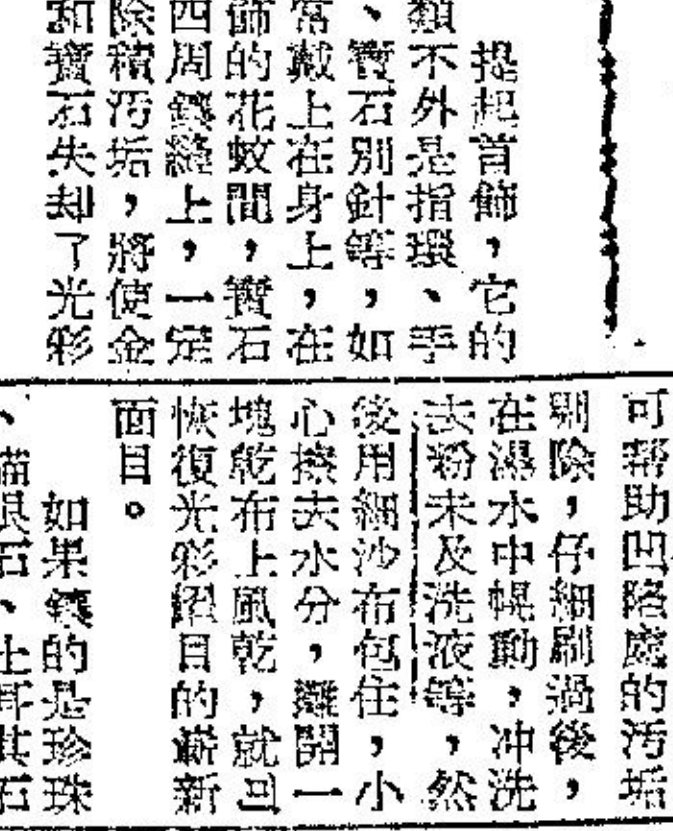 提起首飾，它的
類不外是指環、手
、寶石別針等，如
常戴上在身上，在
飾的花蚊間，寶石
四周鑲縫上，一定
除積汚垢，將使金
和寶石失却了光彩
可帮助凹陷處的汚垢
剔除，仔細刷過後，
在濕水中幌動，冲洗
去粉末及洗液等，然
後用細沙布包住，小
心擦去水分，攤開一
塊乾布上風乾，就囘
恢復光彩紹目的嶄新
面目。
如果鑲的是珍珠
、貓眼石、土耳其石